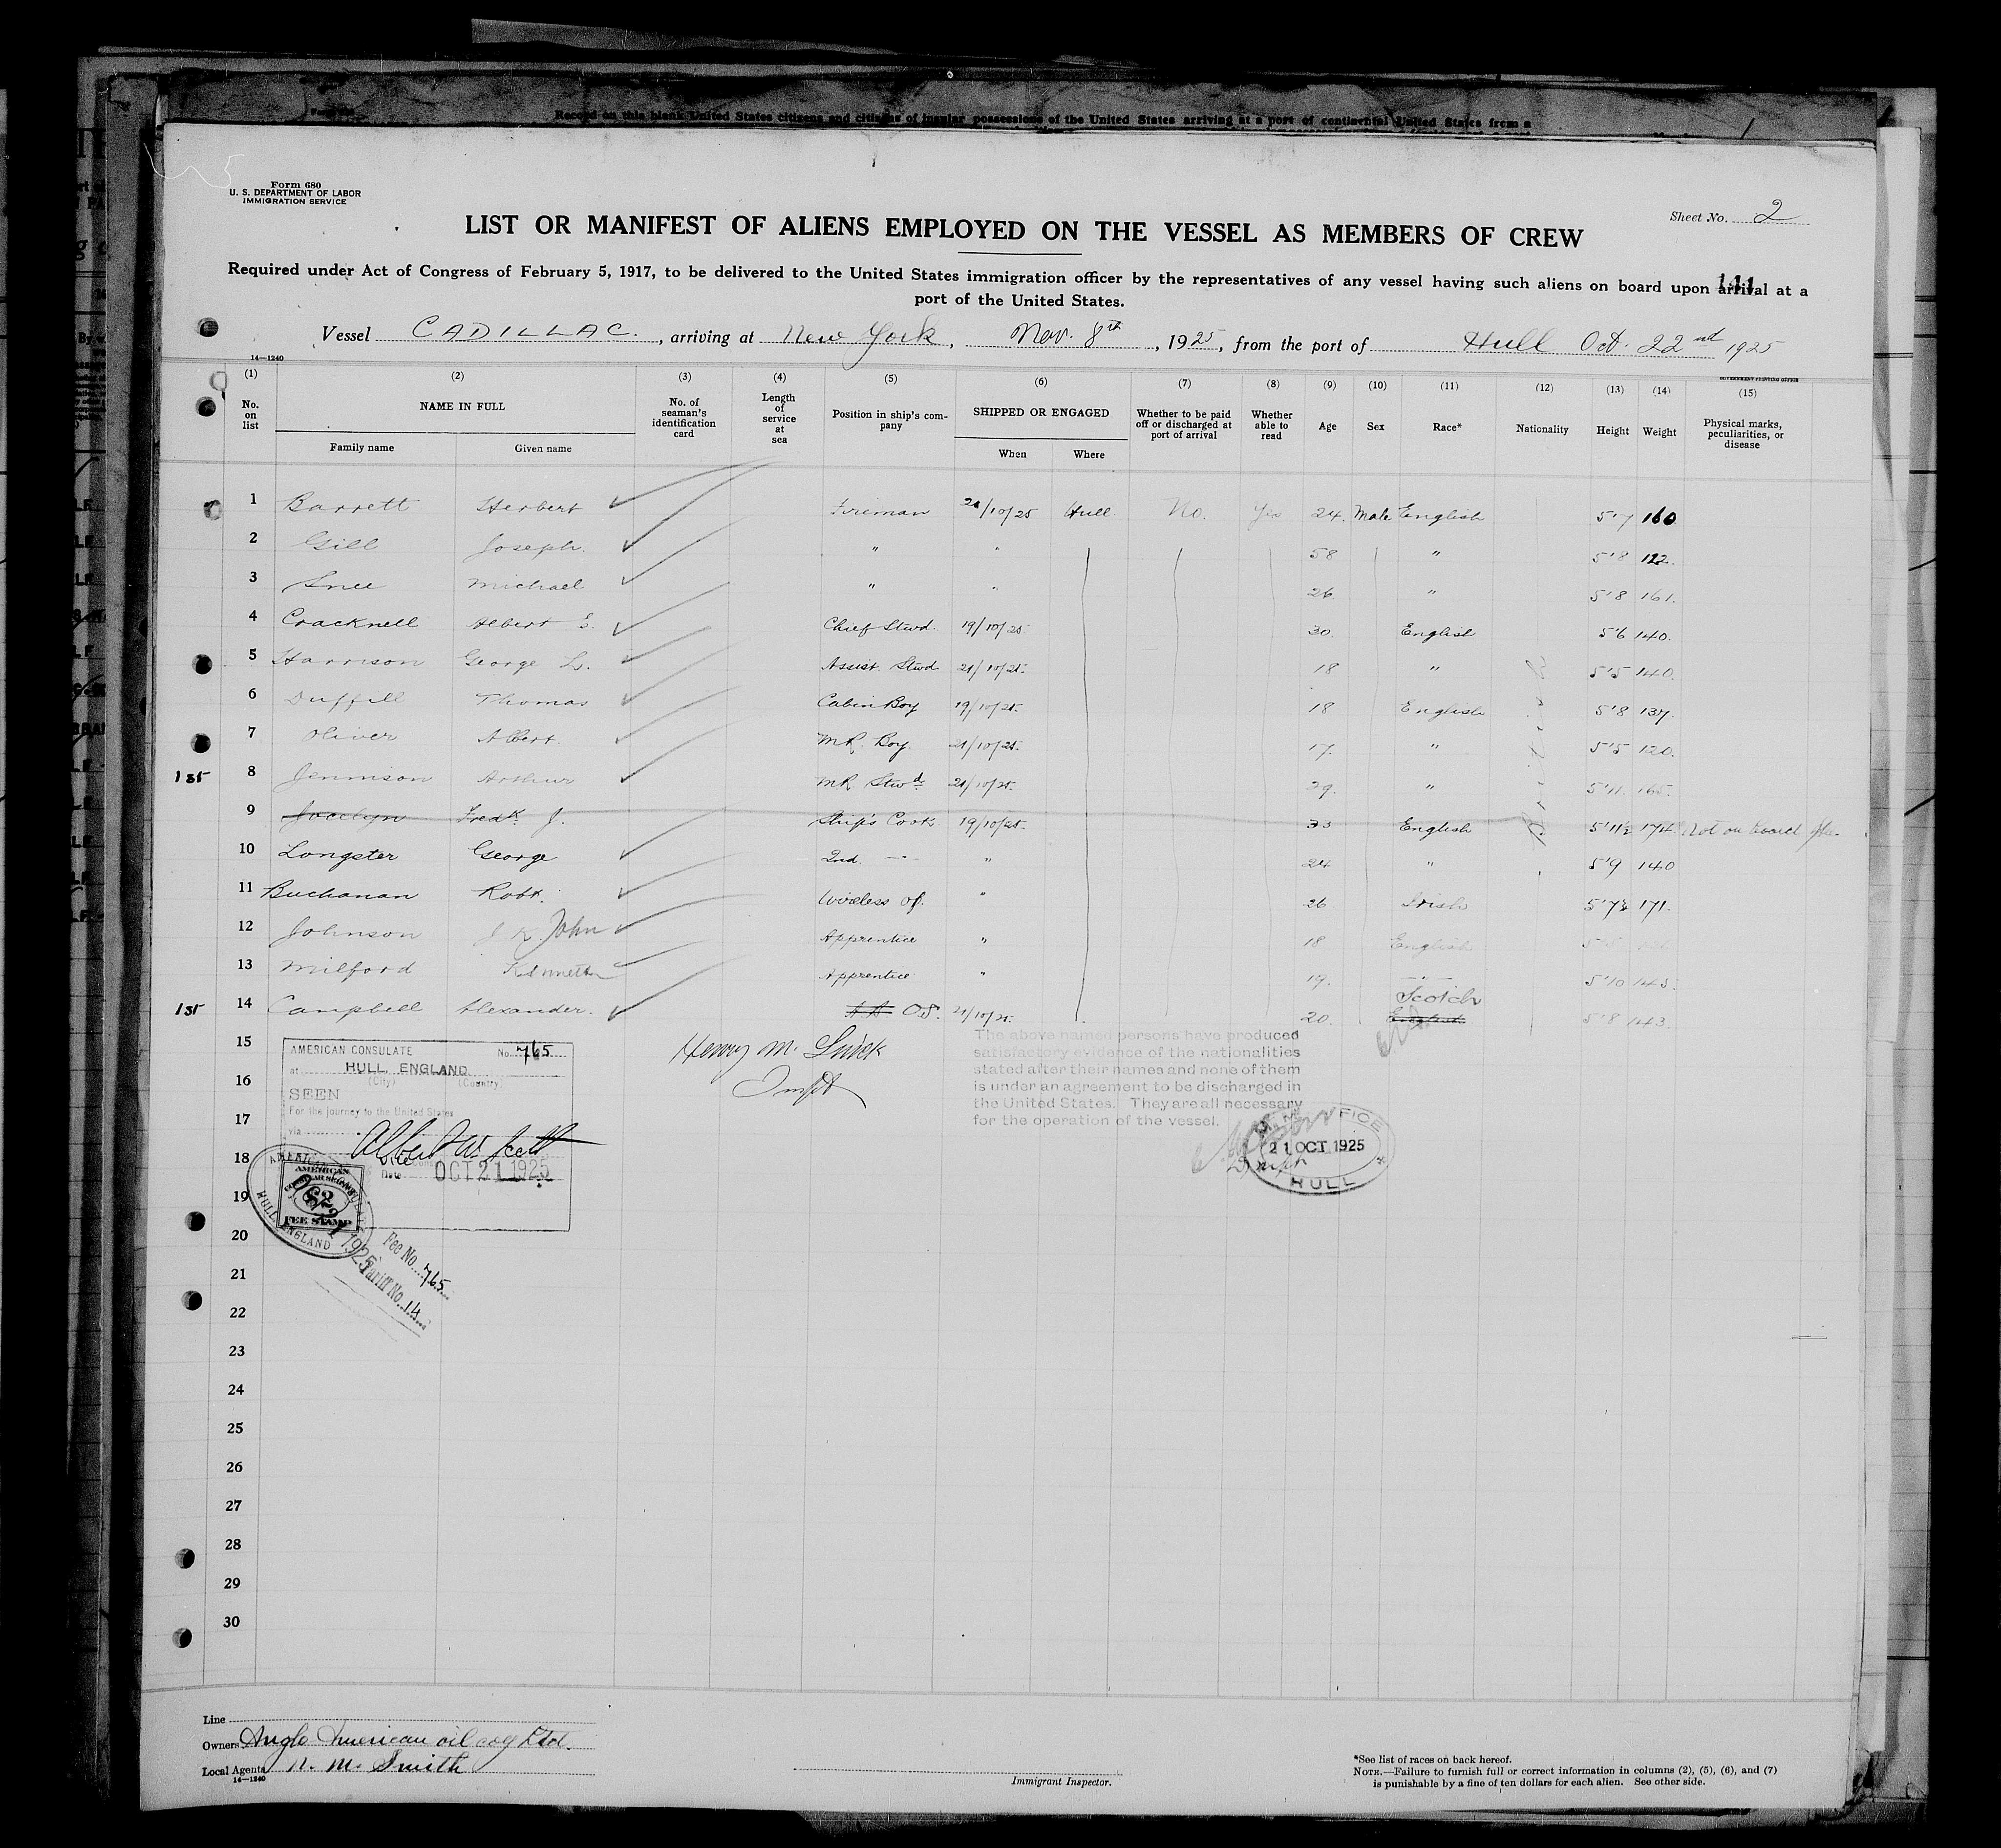 Record on this blank United States citizens and citizens of insular possessions of the United States arriving at a port of continental United States from a
Form 680
U. S. DEPARTMENT OF LABOR
IMMIGRATION SERVICE
Sheet No. 2
LIST OR MANIFEST OF ALIENS EMPLOYED ON THE VESSEL AS MEMBERS OF CREW
Required under Act of Congress of February 5, 1917, to be delivered to the United States immigration officer by the representatives of any vessel having such aliens on board upon arrival at a
port of the United States.
Vessel CADILLAC., arriving at New York, Nov. 8th, 1925, from the port of Hull Oct. 22nd 1925
14—1240
GOVERNMENT PRINTING OFFICE
(1) (2) (3) (4) (5) (6) (7) (8) (9) (10) (11) (12) (13) (14) (15)
No. on list NAME IN FULL No. of seaman's identification card Length of service at sea Position in ship's company SHIPPED OR ENGAGED Whether to be paid off or discharged at port of arrival Whether able to read Age Sex Race* Nationality Height Weight Physical marks, peculiarities, or disease
Family name Given name When Where
1 Barrett Herbert Fireman 21/10/25 Hull. No. Yes 24. Male English 5'7 160.
2 Gill Joseph. " " 58 " 5'8 122.
3 Snee Michael " " 26. " 5'8 161.
4 Cracknell Albert E. Chief Stwd. 19/10/25. 30. English 5'6 140.
5 Harrison George L. Assist. Stwd 21/10/25. 18 " 5'5 140.
6 Duffill Thomas Cabin Boy 19/10/25. 18 English 5'8 137.
7 Oliver Albert. MR. Boy. 21/10/25. 17. " 5'5 120.
135 8 Jennison Arthur MR Stwd 21/10/25. 29. " 5'11. 165.
9 Jocelyn Fredk. J. Ship's Cook. 19/10/25. 33 English 5'11½ 174. Not on board
10 Longster George 2nd. —"— " 24 " 5'9 140
11 Buchanan Robt. Wireless Of. " 26 Irish 5'7½ 171.
12 Johnson J. K. John Apprentice " 18 English
13 Milford Kenneth Apprentice " 19. —"— 5'10 145.
Scotch
135 14 Campbell Alexander. AB OS. 21/10/25. 20. English 5'8 143.
15
16
17
18
19
20
21
22
23
24
25
26
27
28
29
30
AMERICAN CONSULATE No. 765
at HULL, ENGLAND
(City) (Country)
SEEN
For the journey to the United States
via
Vice Consul
Date OCT 21 1925
AMERICAN
CONSULAR SERVICE
$2
FEE STAMP
HULL, ENGLAND
Fee No. 765
Tariff No. 14
The above named persons have produced
satisfactory evidence of the nationalities
stated after their names and none of them
is under an agreement to be discharged in
the United States. They are all necessary
for the operation of the vessel.
21 OCT 1925
HULL
Line
Owners Anglo American Oil Coy Ltd.
Local Agents N. M. Smith
14—1240
Immigrant Inspector.
*See list of races on back hereof.
NOTE.—Failure to furnish full or correct information in columns (2), (5), (6), and (7)
is punishable by a fine of ten dollars for each alien. See other side.